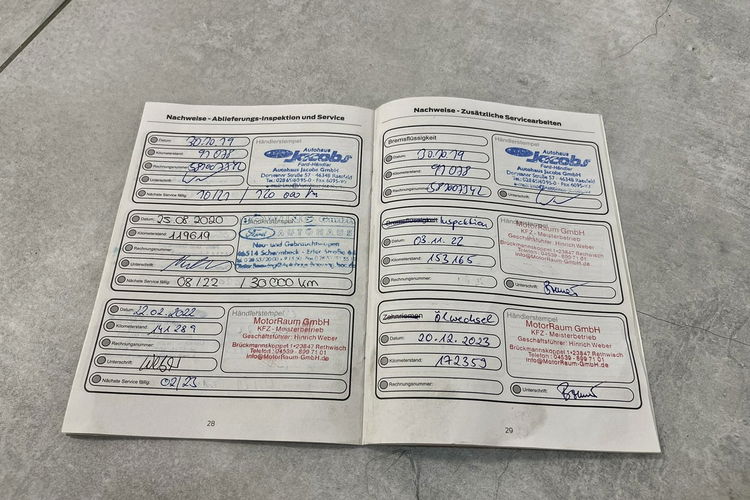 Nachweise - Ablieferungs-Inspektion und Service
Datum: 30.10.19
Kilometerstand: 97078
Rechnungsnummer:
Unterschrift:
Nächste Service fällig: 10/21 / 120 000 km
Händlerstempel
Autohaus
Jacobs
Ford-Händler
Autohaus Jacobs GmbH
Dorstener Straße 57 46348 Raesfeld
Datum: 25 08 2020
Kilometerstand: 119619
Rechnungsnummer:
Unterschrift:
Nächste Service fällig: 08/22 / 30 000 km
Ford AUTOHAUS
Neu- und Gebrauchtwagen
46514 Schermbeck - Erler Straße
Datum: 22.02.2022
Kilometerstand: 141 289
Rechnungsnummer:
Unterschrift:
Nächste Service fällig: 02/23
Händlerstempel
MotorRaum GmbH
KFZ - Meisterbetrieb
Geschäftsführer: Hinrich Weber
Brückmannskoppel 1•23847 Rethwisch
Telefon: 04539 - 899 71 01
info@MotorRaum-GmbH.de
28
Nachweise - Zusätzliche Servicearbeiten
Bremsflüssigkeit
Datum: 30.10.19
Kilometerstand: 97078
Rechnungsnummer:
Händlerstempel
Autohaus
Jacobs
Ford-Händler
Autohaus Jacobs GmbH
Dorstener Straße 57 46348 Raesfeld
Unterschrift:
Bremsflüssigkeit Inspektion
Datum: 03.11.22
Kilometerstand: 153165
Rechnungsnummer:
Händlerstempel
MotorRaum GmbH
KFZ - Meisterbetrieb
Geschäftsführer: Hinrich Weber
Brückmannskoppel 1•23847 Rethwisch
Telefon: 04539 - 899 71 01
info@MotorRaum-GmbH.de
Unterschrift:
Zahnriemen Ölwechsel
Datum: 20.12.2023
Kilometerstand: 172359
Rechnungsnummer:
Händlerstempel
MotorRaum GmbH
KFZ - Meisterbetrieb
Geschäftsführer: Hinrich Weber
Brückmannskoppel 1•23847 Rethwisch
Telefon: 04539 - 899 71 01
info@MotorRaum-GmbH.de
Unterschrift:
29